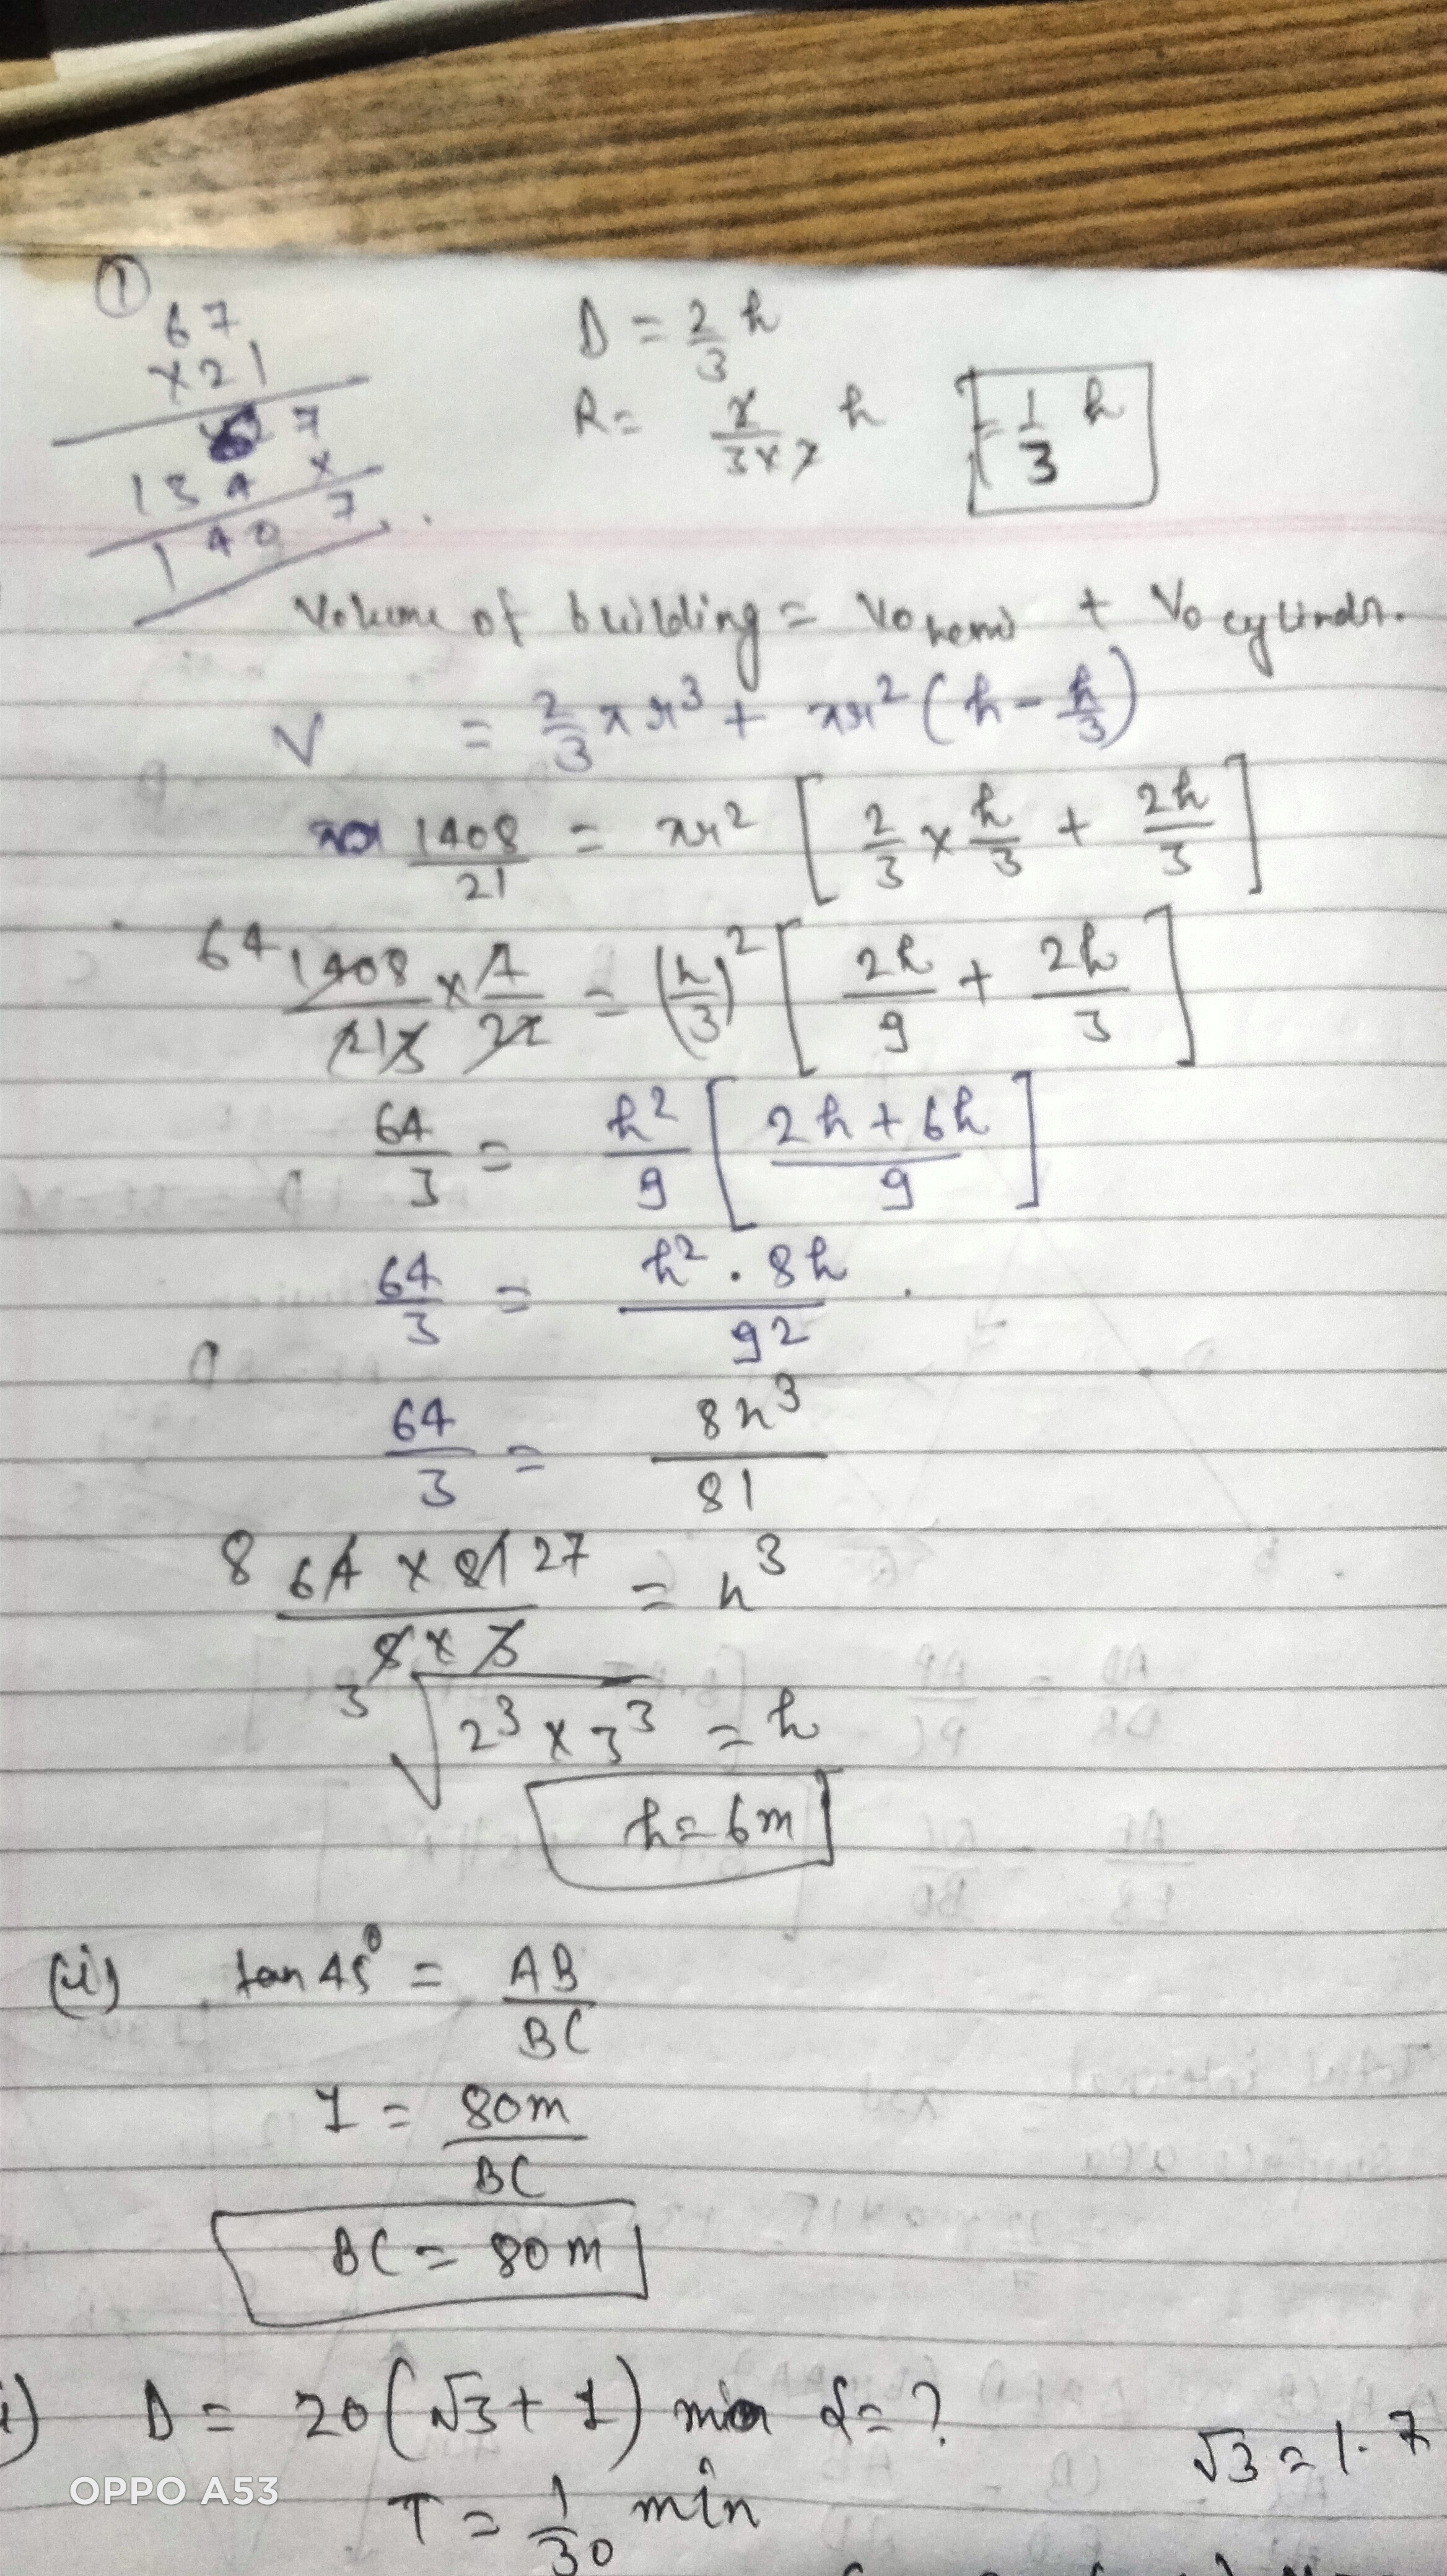 ①
67
×21
67
134×
1407
D = 2/3 h
R = 2/(3×2) h = 1/3 h
Volume of building = Vo hemi + Vo cylindr.
V = 2/3 πr³ + πr² (h - h/3)
1408/21 = πr² [2/3 × h/3 + 2h/3]
64 1408/21 3 × 7/22 = (h/3)² [2h/9 + 2h/3]
64/3 = h²/9 [(2h + 6h)/9]
64/3 = (h² . 8h)/9²
64/3 = 8h³/81
8 (64 × 81 27)/(8 × 3) = h³
³√(2³ × 3³) = h
h = 6m
(ii) tan 45° = AB/BC
1 = 80m/BC
BC = 80m
i) D = 20(√3 + 1) S = ?
√3 = 1.7
T = 1/30 min
OPPO A53